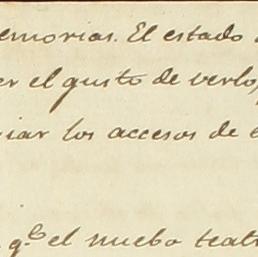 emorias. El estado
er el gusto de verlo,
iar los accesos de
q.^e el nuebo teat